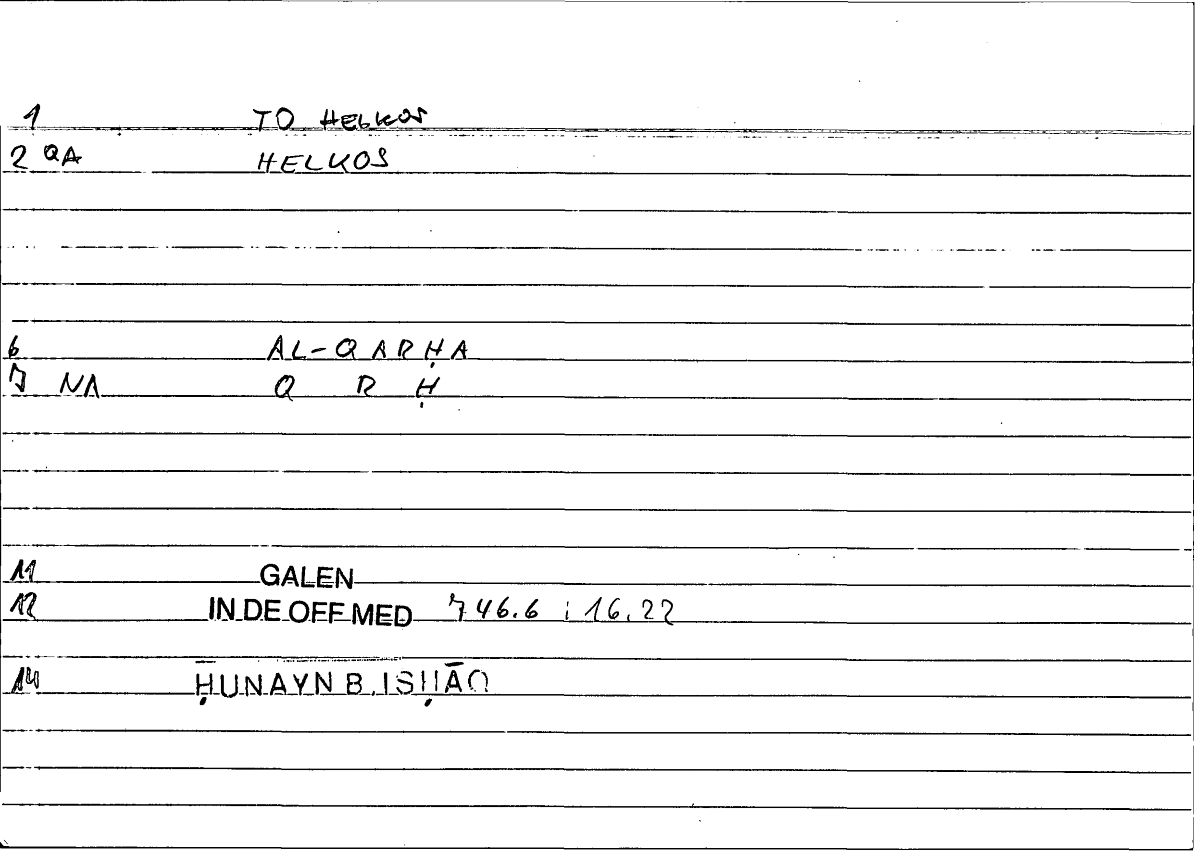 1 TO HELKOS
2 QA HELKOS
6 AL-QARḤA
7 NA Q R Ḥ
11 GALEN
12 IN DE OFF MED 746.6 ; 16.22
14 ḤUNAYN B. ISḤĀQ